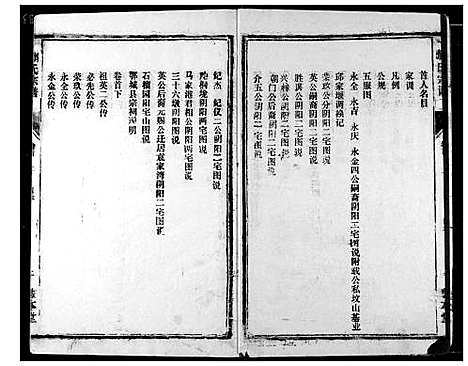 首人名目
家訓
凡例
公規
五服圖
永全 永吉 永庆 永金四公嗣裔阴阳二宅图说附載公私坟山基业
邱家塅调换记
荣玖公分阴阳二宅图说
英公嗣裔阴阳二宅图说
胜琪公阴阳二宅图说
兴林公阴阳二宅图说
朝门公后裔阴阳二宅图说
介五公阴阳二宅图说
纪杰 纪仅二公阴阳二宅图说
桐垅阴阳两宅图说
马家港君相公阴阳两宅图说
三十六墩阴阳图说
英公后裔元赐公迁居袁家湾阴阳二宅图说
石榴园阳宅山图说
鄂城县宗祠说明
卷首下
祖英二公传
必先公传
荣玖公传
永全公传
永金公传
氏宗谱
本堂